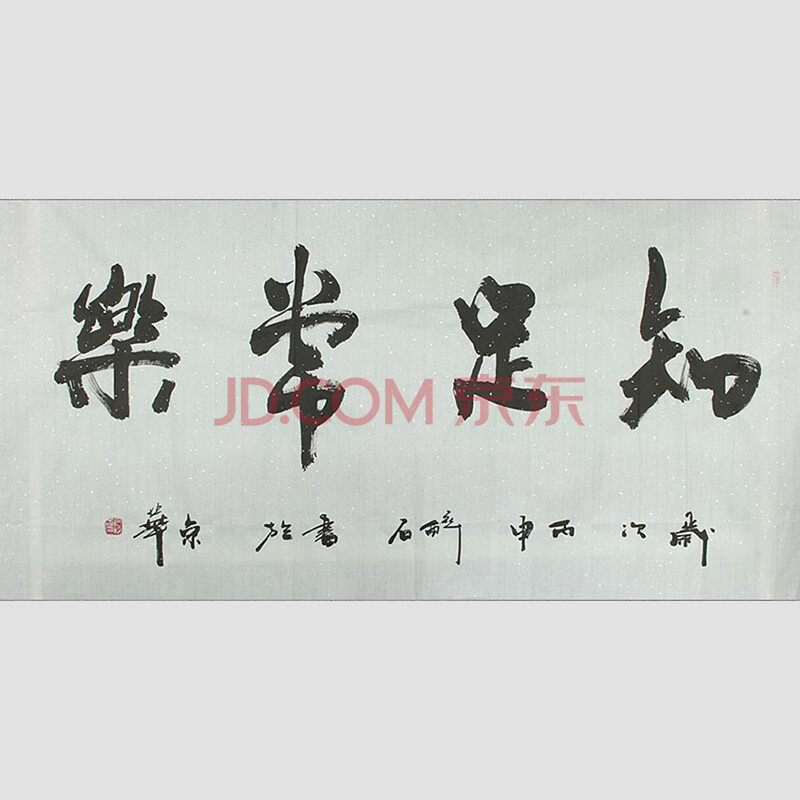 知足常樂
JD.COM 京东
歲次丙申醉石書於京華